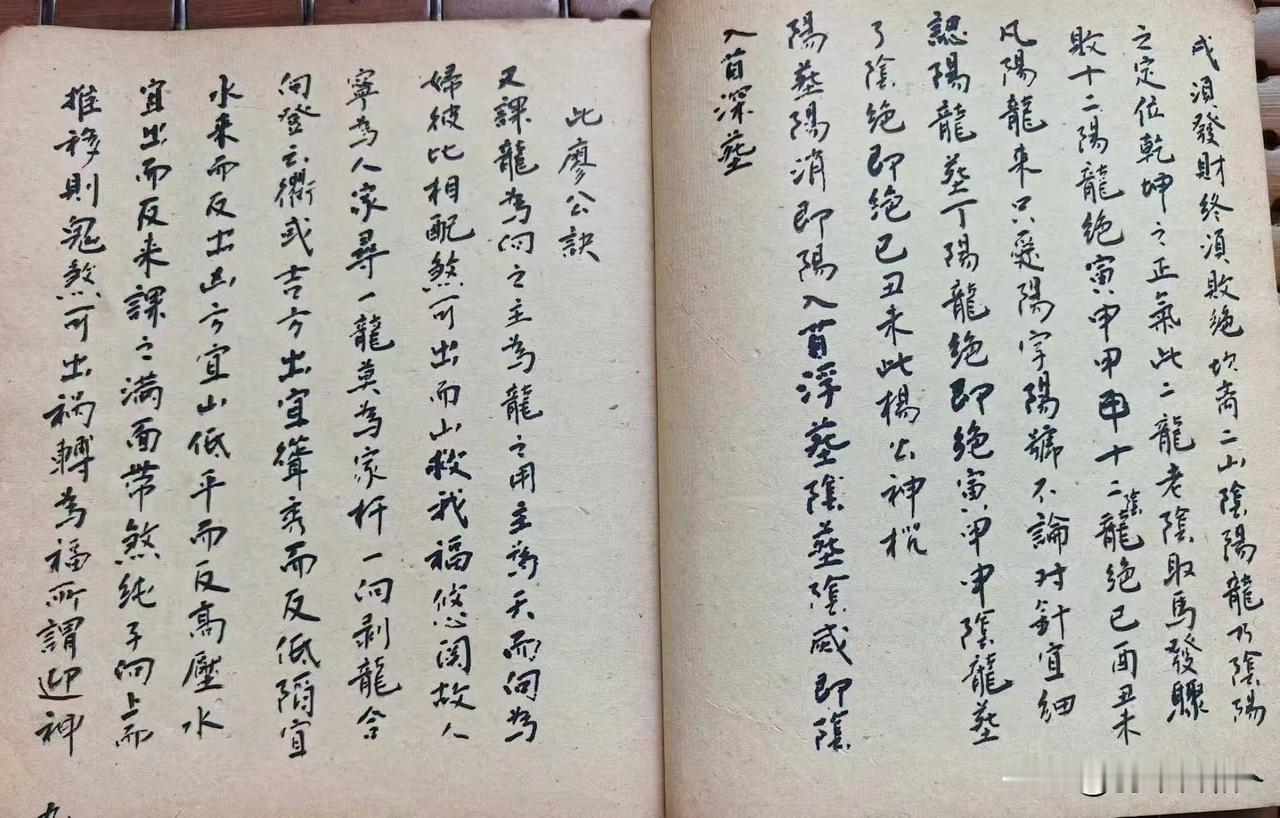 戌須發財終須敗绝坎离二山陰陽龍乃陰陽
之定位乾坤之正氣此二龍老陰取馬發驟
敗十二陽龍绝寅申甲十二陰龍绝巳酉丑未
凡陽龍来只爱陽字陽號不論对針宜细
認陽龍塟丁陽龍绝即绝寅甲申陰龍塟
了陰绝即绝巳丑未此楊公神
陽塟陽消即陽入首浮塟陰塟陰咸即陰
入首深塟
此廖公訣
又課龍為向之主為龍之用主為夭而向為
婦彼比相配煞可出而山救我福悠閎故人
寧為人家尋一龍莫為家杆一向剥龍合
向登云衢或吉方出宜聳秀而反低陷宜
水来而反出凶方宜山低平而反高壓水
宜出而反来課之满面带煞纯子向上而
推移則鬼煞可出禍轉為福所謂迎神
九